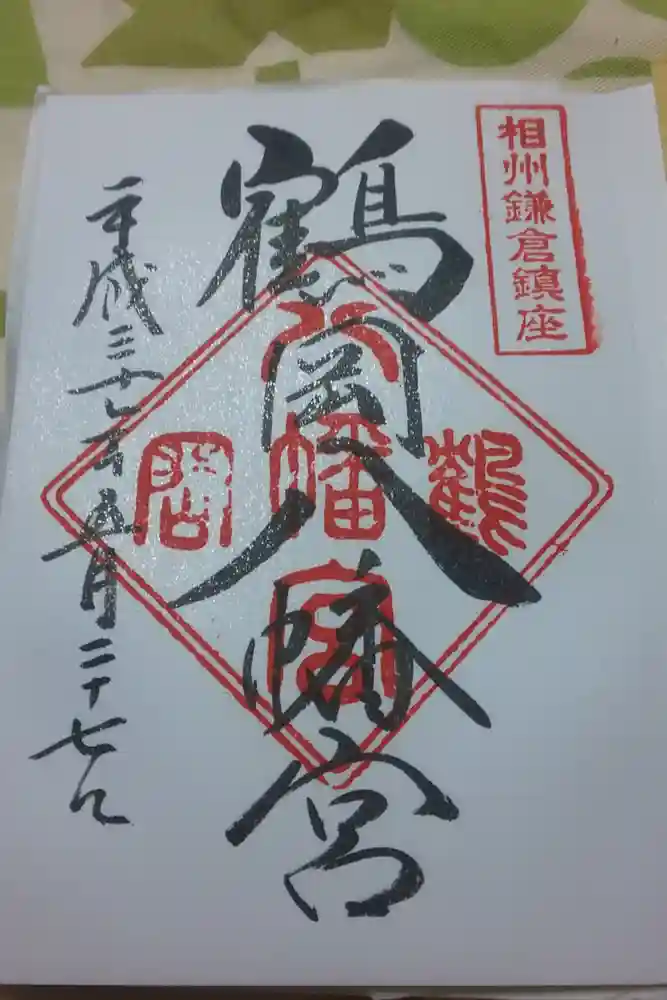 相州鎌倉鎮座
鶴岡八幡宮
鶴岡八幡宮
平成三十年五月二十七日